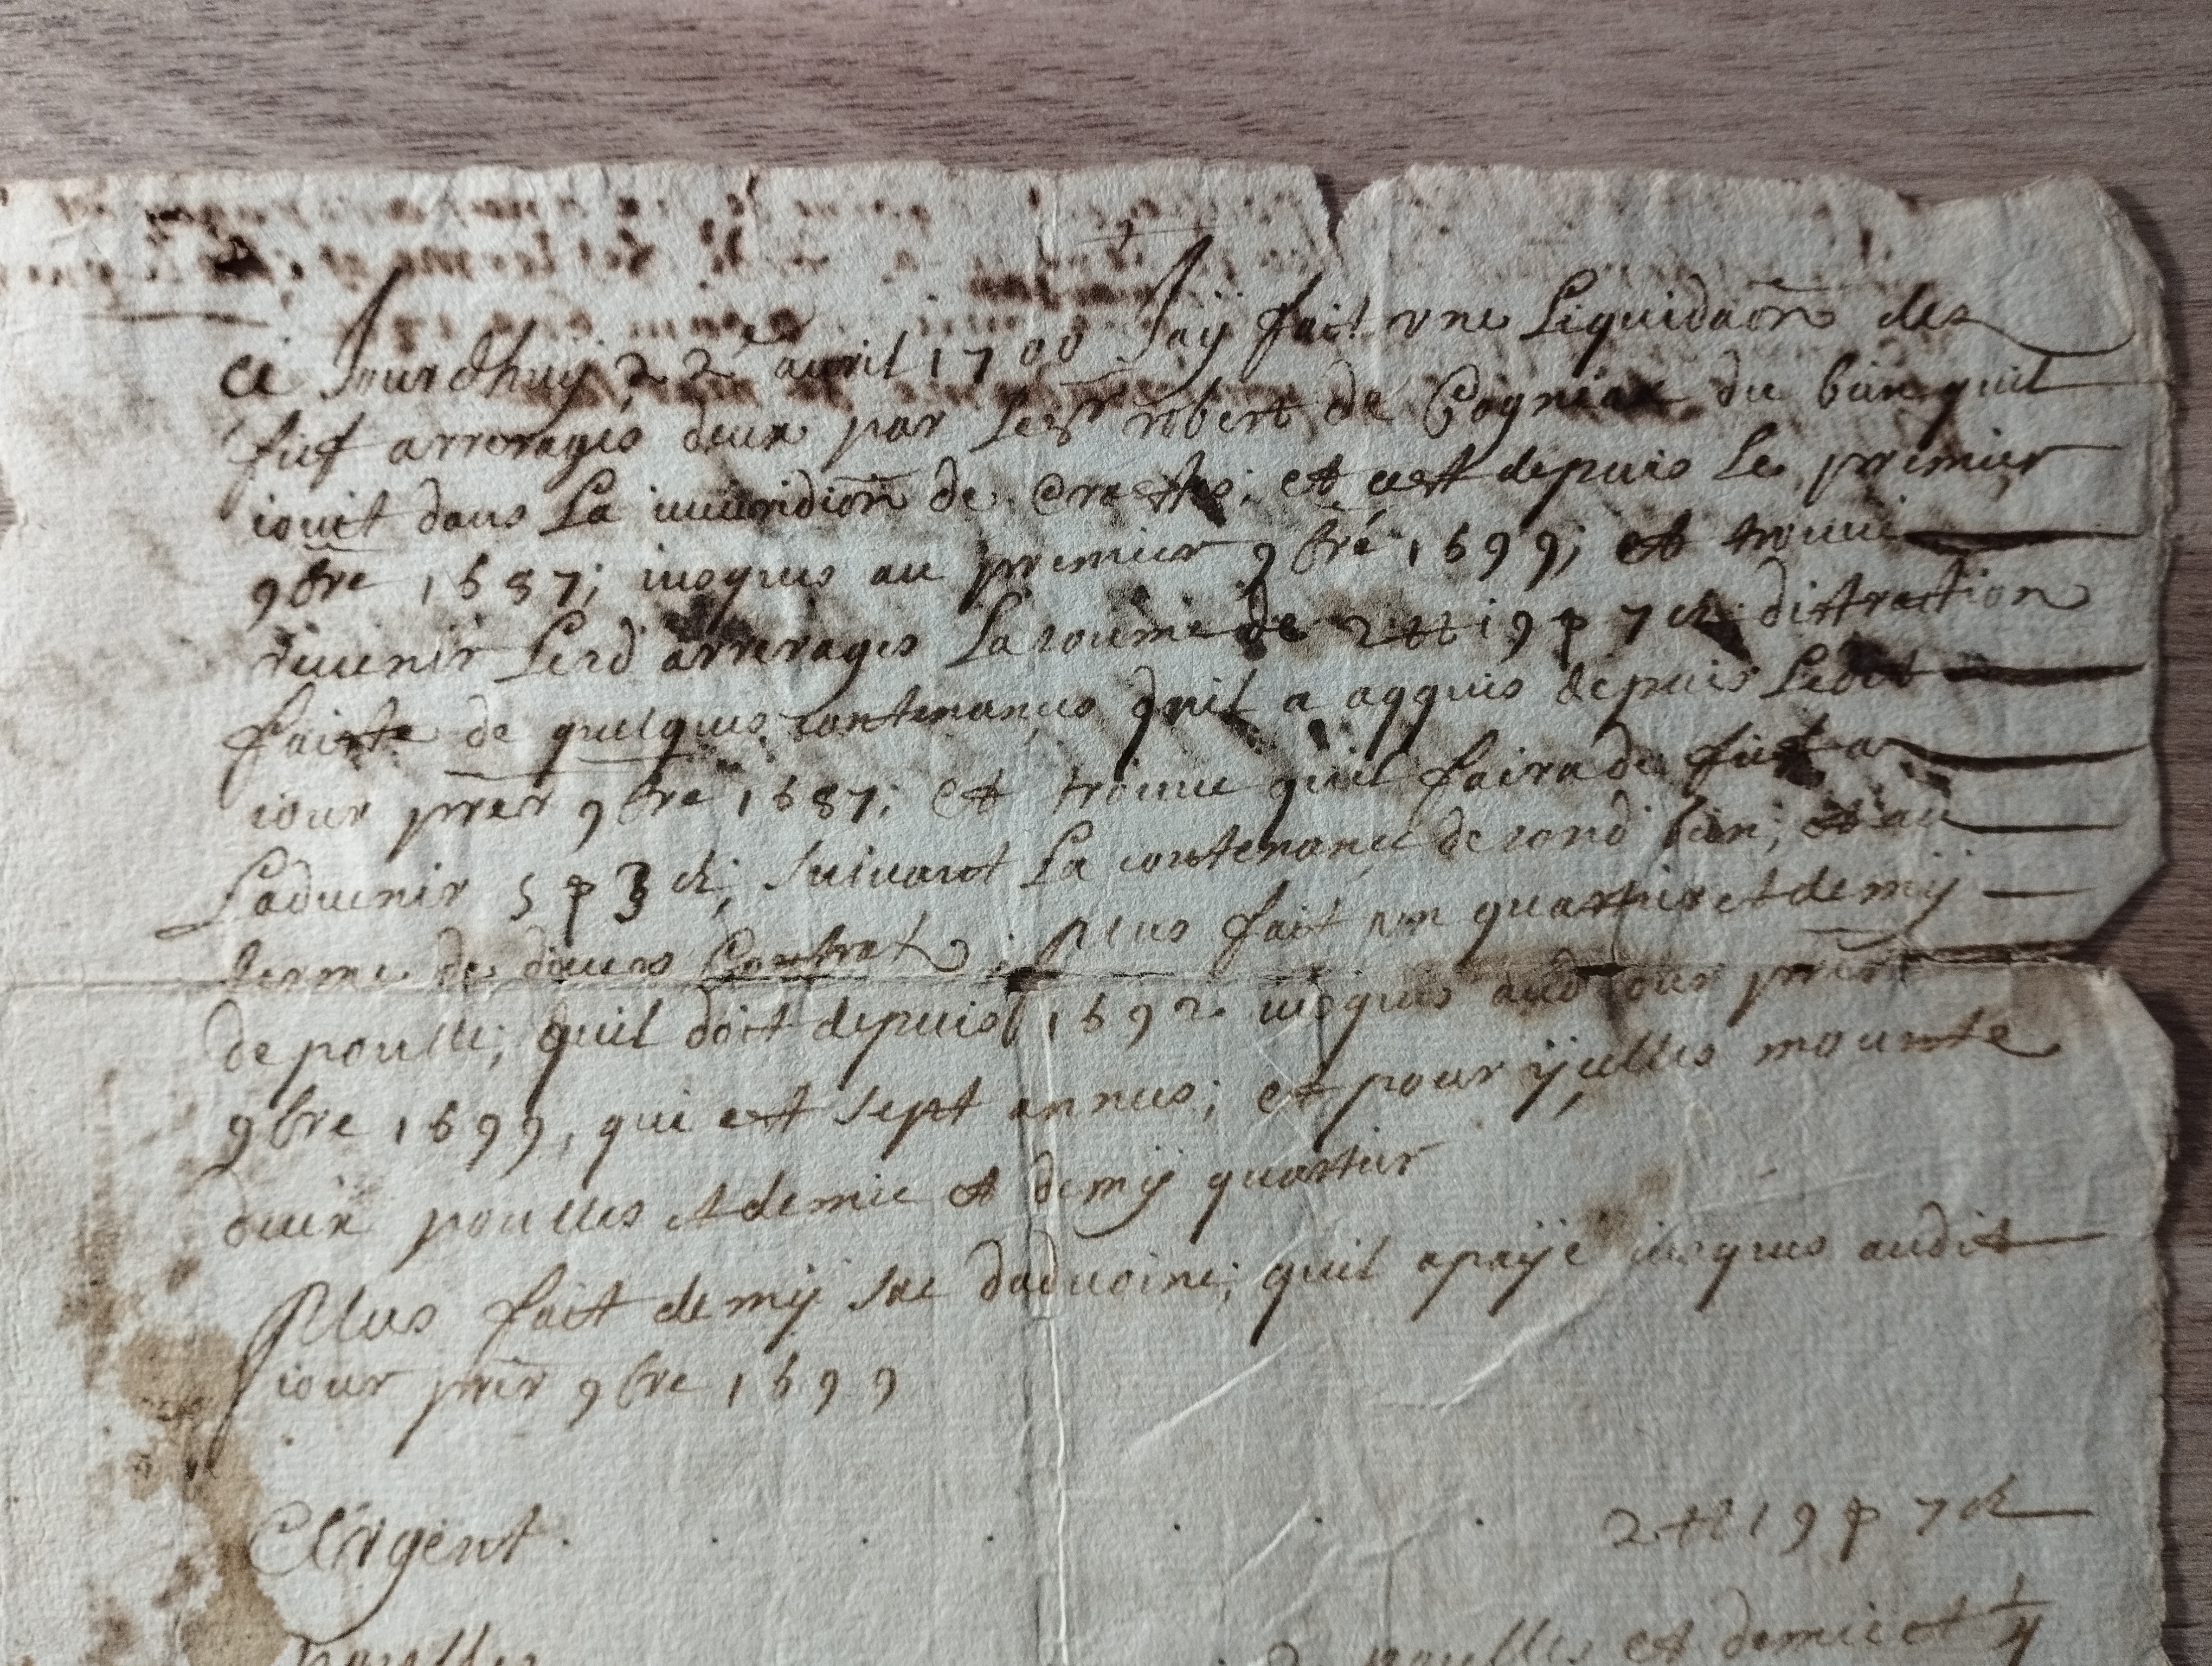 Ce Jourdhuy 22e avril 1700 Jaÿ fait vne Liquidaõn des
fief arrerages deux par Le Sr robert de Cogniax du bien quil
iouit dans La iuuridiõn de et cest depuis Le premier
9bre 1687; iusques au premier 9bre 1699; et trouue
reuenir Lesd arrerages La somme de 2 tt 19 p 7 d distraction
fairte de quelques contenances quil a aqquis depuis Ledit
iour prer 9bre 1687; et trouue quil faira de fief a
Laduenir 5 p 3 d; Suiuant La contenance de sond bien; et au
terme de diuers Contrat; Plus fait vn quartier et demÿ
de poulle; quil doit depuis 1692 iusques aud iour prer
9bre 1699, qui est sept annees; et pour ÿcelles mounte
deux poulles et demie et demÿ quartier
Plus fait demÿ sac daduoine; quil a paÿé iusques audit
iour prer 9bre 1699
Argent . . . . . . 2 tt 19 p 7 d
poulles 2 poulles et demie et